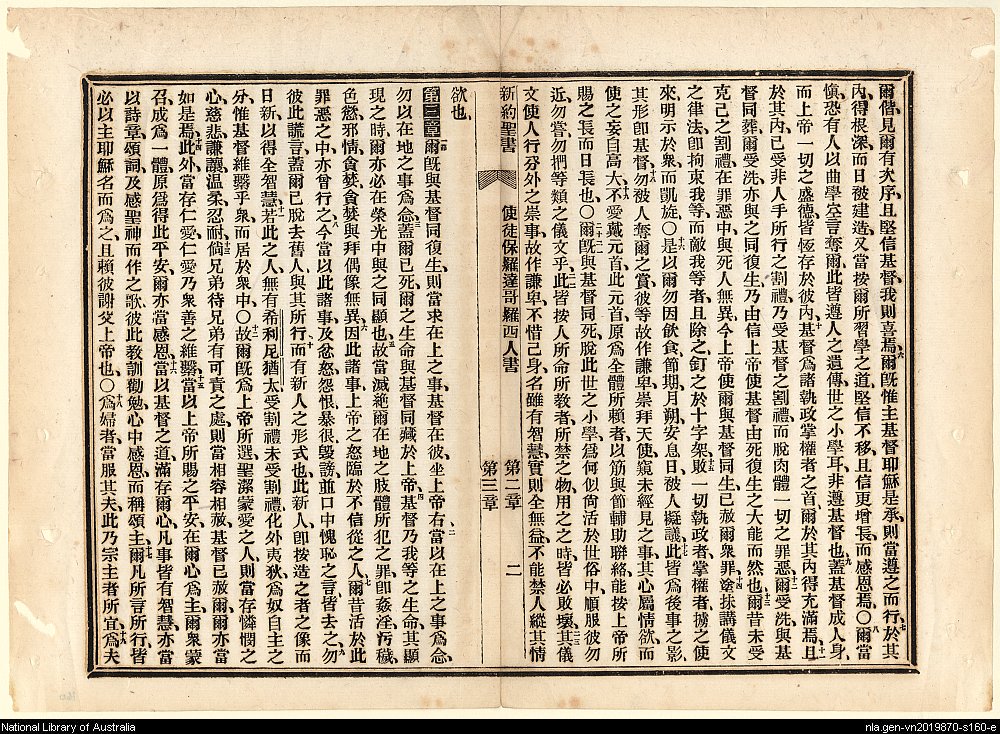 爾偕、見爾有次序、且堅信基督、我則喜焉、六爾既惟主基督耶穌是承、則當遵之而行、七於其
內得根深而日被建造、又當按爾所習學之道、堅信不移、且信更增長而感恩焉、〇八爾當
愼、恐有人以曲學空言奪爾、此皆遵人之遺傳、世之小學耳、非遵基督也、九蓋基督成人身、
而上帝一切之盛德、皆恆存於彼內、十基督爲諸執政掌權者之首、爾於其內得充滿焉、十一且
於其內、已受非人手所行之割禮、乃受基督之割禮、而脫肉體一切之罪惡、十二爾受洗與基
督同葬、爾受洗亦與之同復生、乃由信上帝使基督由死復生之大能而然也、十三爾昔未受
克己之割禮、在罪惡中與死人無異、今上帝使爾與基督同生、已赦爾衆罪、十四塗抹講儀文
之律法、卽拘束我等、而敵我等者、且除之、釘之於十字架、十五敗一切執政者、掌權者、擄之、使
來明示於衆而凱旋、〇十六是以爾勿因飲食、節期、月朔、安息日、被人擬議、十七此皆爲後事之影、
其形卽基督、十八勿被人奪爾之賞、彼等故作謙卑、崇拜天使、窺未經見之事、其心屬情欲而
使之妄自高大、十九不愛戴元首、此元首原爲全體所賴者、以筋與節輔助聯絡、能按上帝所
賜之長而日長也、〇二十爾既與基督同死、脫此世之小學、爲何似尙活於世俗中、順服彼勿
近、勿嘗、勿捫等類之儀文乎、二二此皆按人所命所教者、所禁之物、用之之時皆必敗壞、二三其儀
文使人行分外之崇事、故作謙卑、不惜己身、名雖有智慧、實則全無益、不能禁人縱其情
新約聖書 使徒保羅達哥羅西人書 第二章 第三章 二
欲也、
第三章一爾既與基督同復生、則當求在上之事、基督在彼坐上帝右、二當以在上之事爲念、
勿以在地之事爲念、三蓋爾已死、爾之生命與基督同藏於上帝、四基督乃我等之生命、其顯
現之時、爾亦必在榮光中與之同顯也、五故當滅絶爾在地之肢體所犯之罪、卽姦淫、污穢、
色慾、邪情、貪婪、貪婪與拜偶像無異、六因此諸事、上帝之怒臨於不信從之人、七爾昔活於此
罪惡之中、亦曾行之、八今當以此諸事、及忿怒、怨恨、暴很、毀謗、並口中愧恥之言、皆去之、九勿
彼此謊言、蓋爾已脫去舊人與其所行、十而有新人之形式也、此新人卽按造之者之像而
日新、以得全智慧、十一若此之人、無有希利尼、猶太、受割禮、未受割禮、化外、夷狄、爲奴、自主之
分、惟基督維繫乎衆而居於衆中、〇十二故爾既爲上帝所選、聖潔蒙愛之人、則當存憐憫之
心、慈悲、謙讓、溫柔、忍耐、十三倘兄弟待兄弟有可責之處、則當相容相赦、基督已赦爾、爾亦當
如是焉、十四此外當存仁愛、仁愛乃衆善之維繫、十五當以上帝所賜之平安在爾心爲主、爾衆蒙
召成爲一體、原爲得此平安、爾亦當感恩、十六當以基督之道滿存爾心、凡事皆有智慧、亦當
以詩章、頌詞、及感聖神而作之歌、彼此教訓勸勉、心中感恩而稱頌主、十七爾凡所言所行、皆
必以主耶穌名而爲之、且賴彼謝父上帝也、〇十八爲婦者、當服其夫、此乃宗主者所宜、十九爲夫
National Library of Australia
nla.gen-vn2019870-s160-e